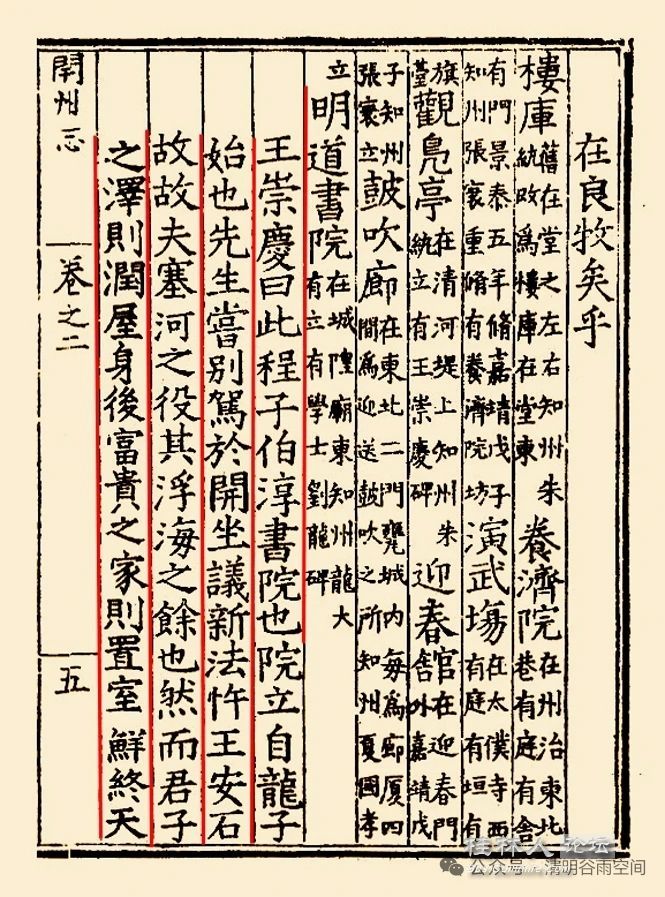 在良牧矣乎
樓庫舊在堂之左右知州朱統改爲樓庫在堂東養濟院在州治東北巷有庭有舍
有門景泰五年脩嘉靖戊子知州張寰重脩有養濟院坊演武場在太僕寺西有庭有垣有
旗臺觀鳧亭在清河堤上知州朱統立有王崇慶碑迎春舘在迎春門外嘉靖戊
子知州張寰立鼓吹廊在東北二門甕城内每爲廊厦四間爲迎送鼓吹之所知州夏國孝
立明道書院在城隍廟東知州龍大有立有學士劉龍碑
王崇慶曰此程子伯淳書院也院立自龍子
始也先生嘗別駕於開坐議新法忤王安石
故故夫塞河之役其浮海之餘也然而君子
之澤則潤屋身後富貴之家則置室鮮終天
開州志 卷之二 五
桂林人论坛
公众号 · 清明谷雨空间